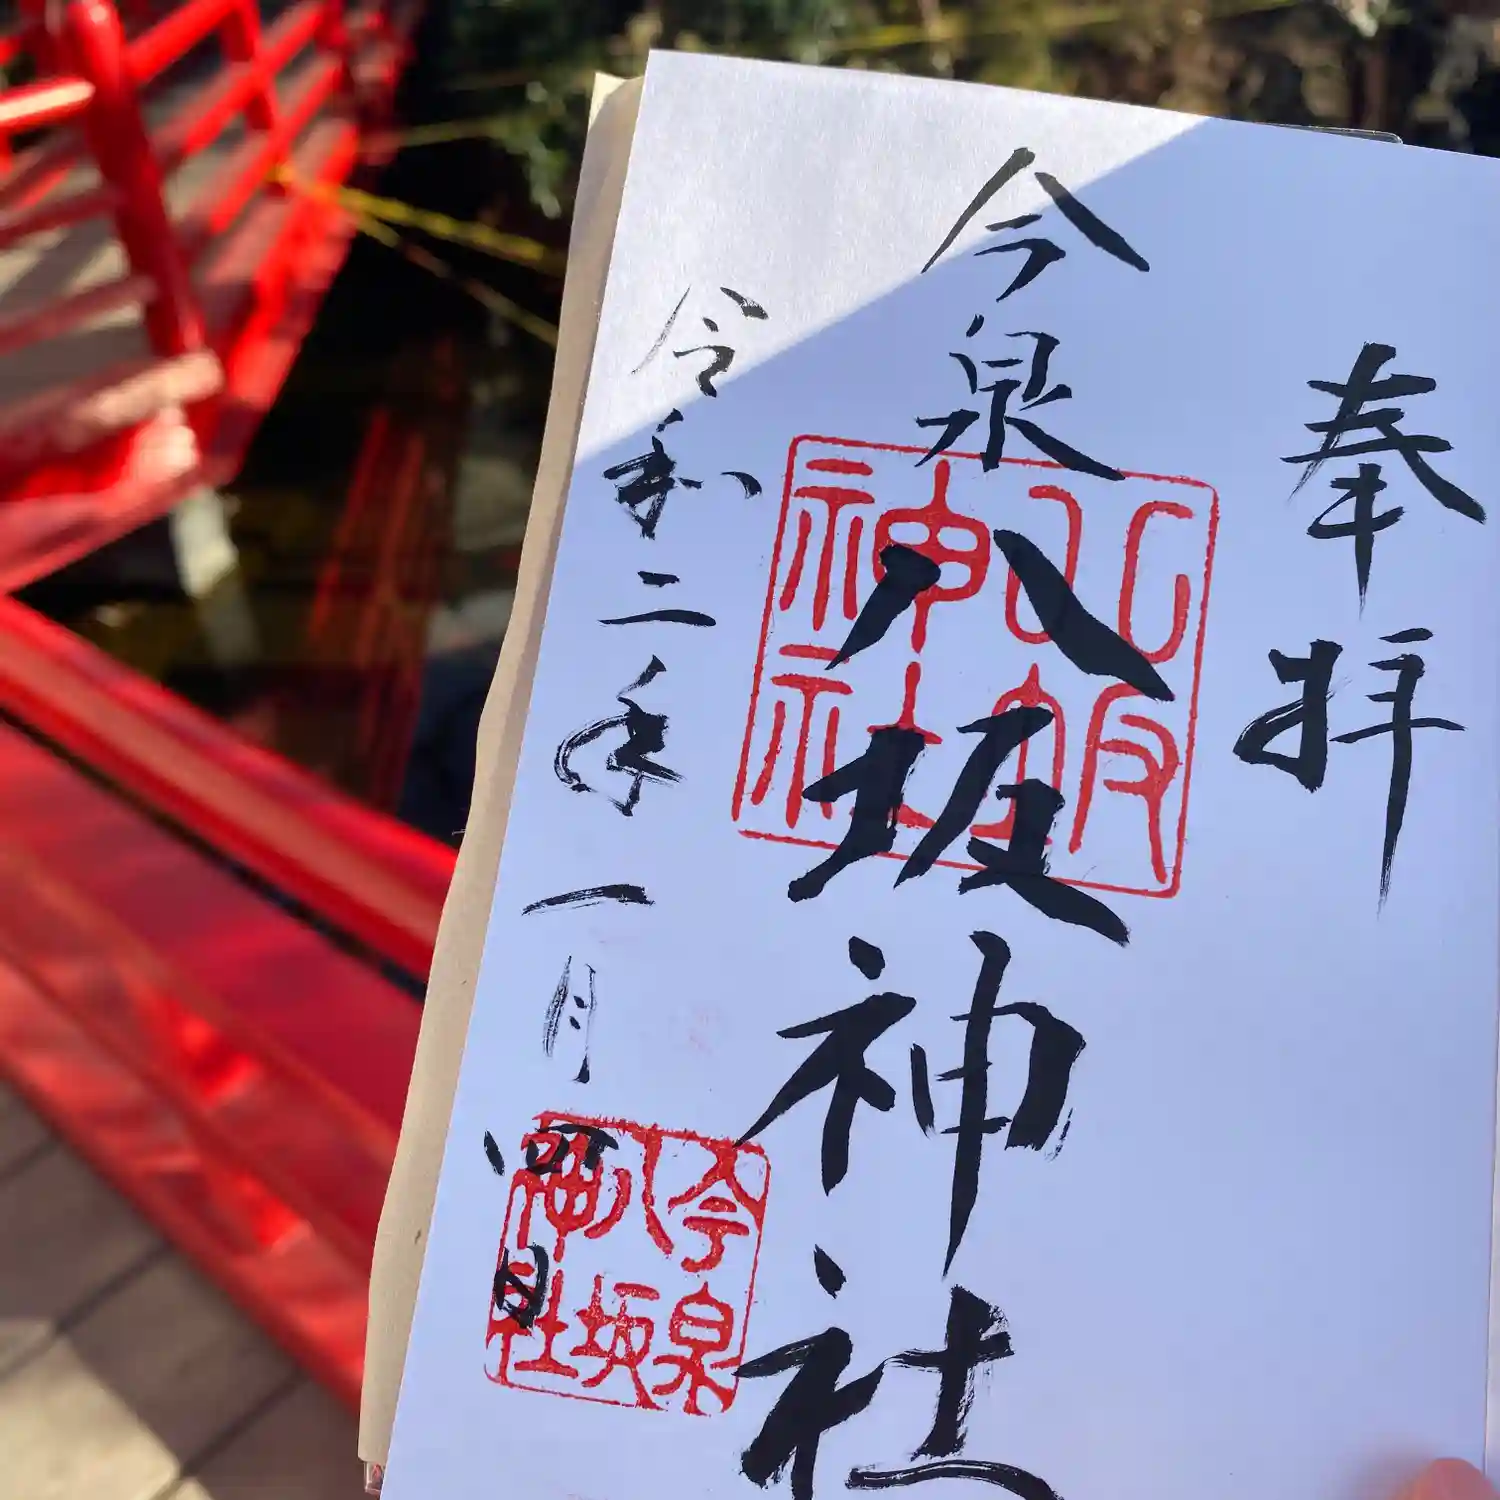 奉拝
今泉
八坂神社
八坂
神社
令和二年一月
日
今泉
八坂
神社